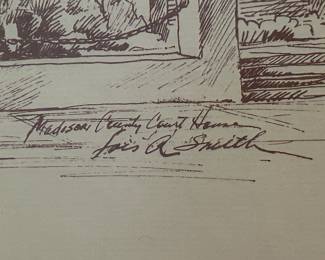 Madison County Court House
Lois A Smith